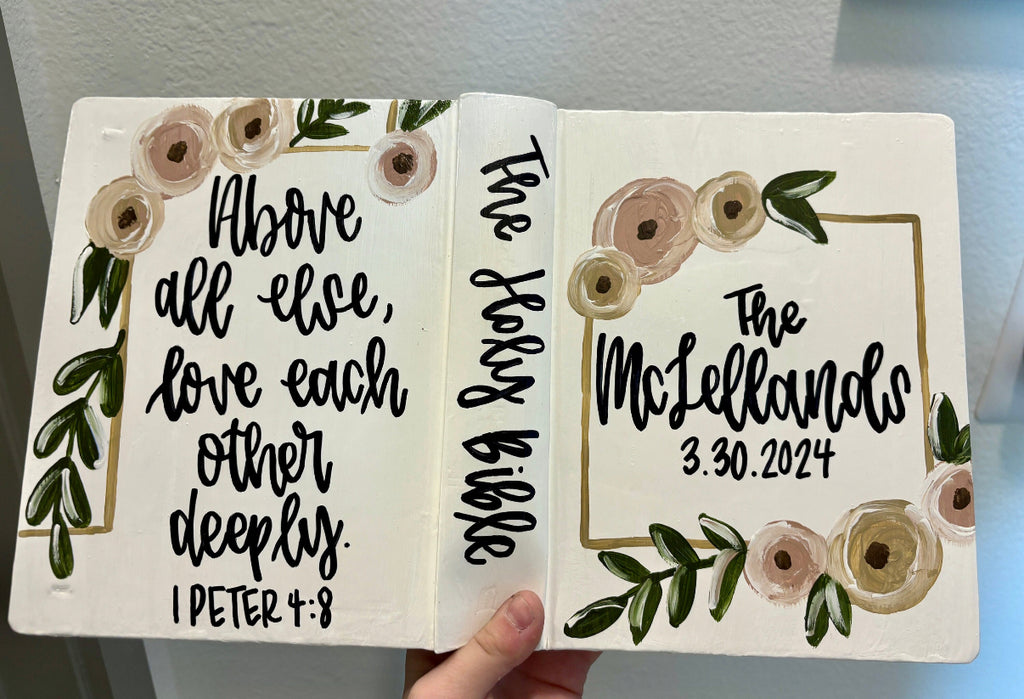 Above
all else,
love each
other
deeply.
1 PETER 4:8
The Holy Bible
The
McLellands
3.30.2024